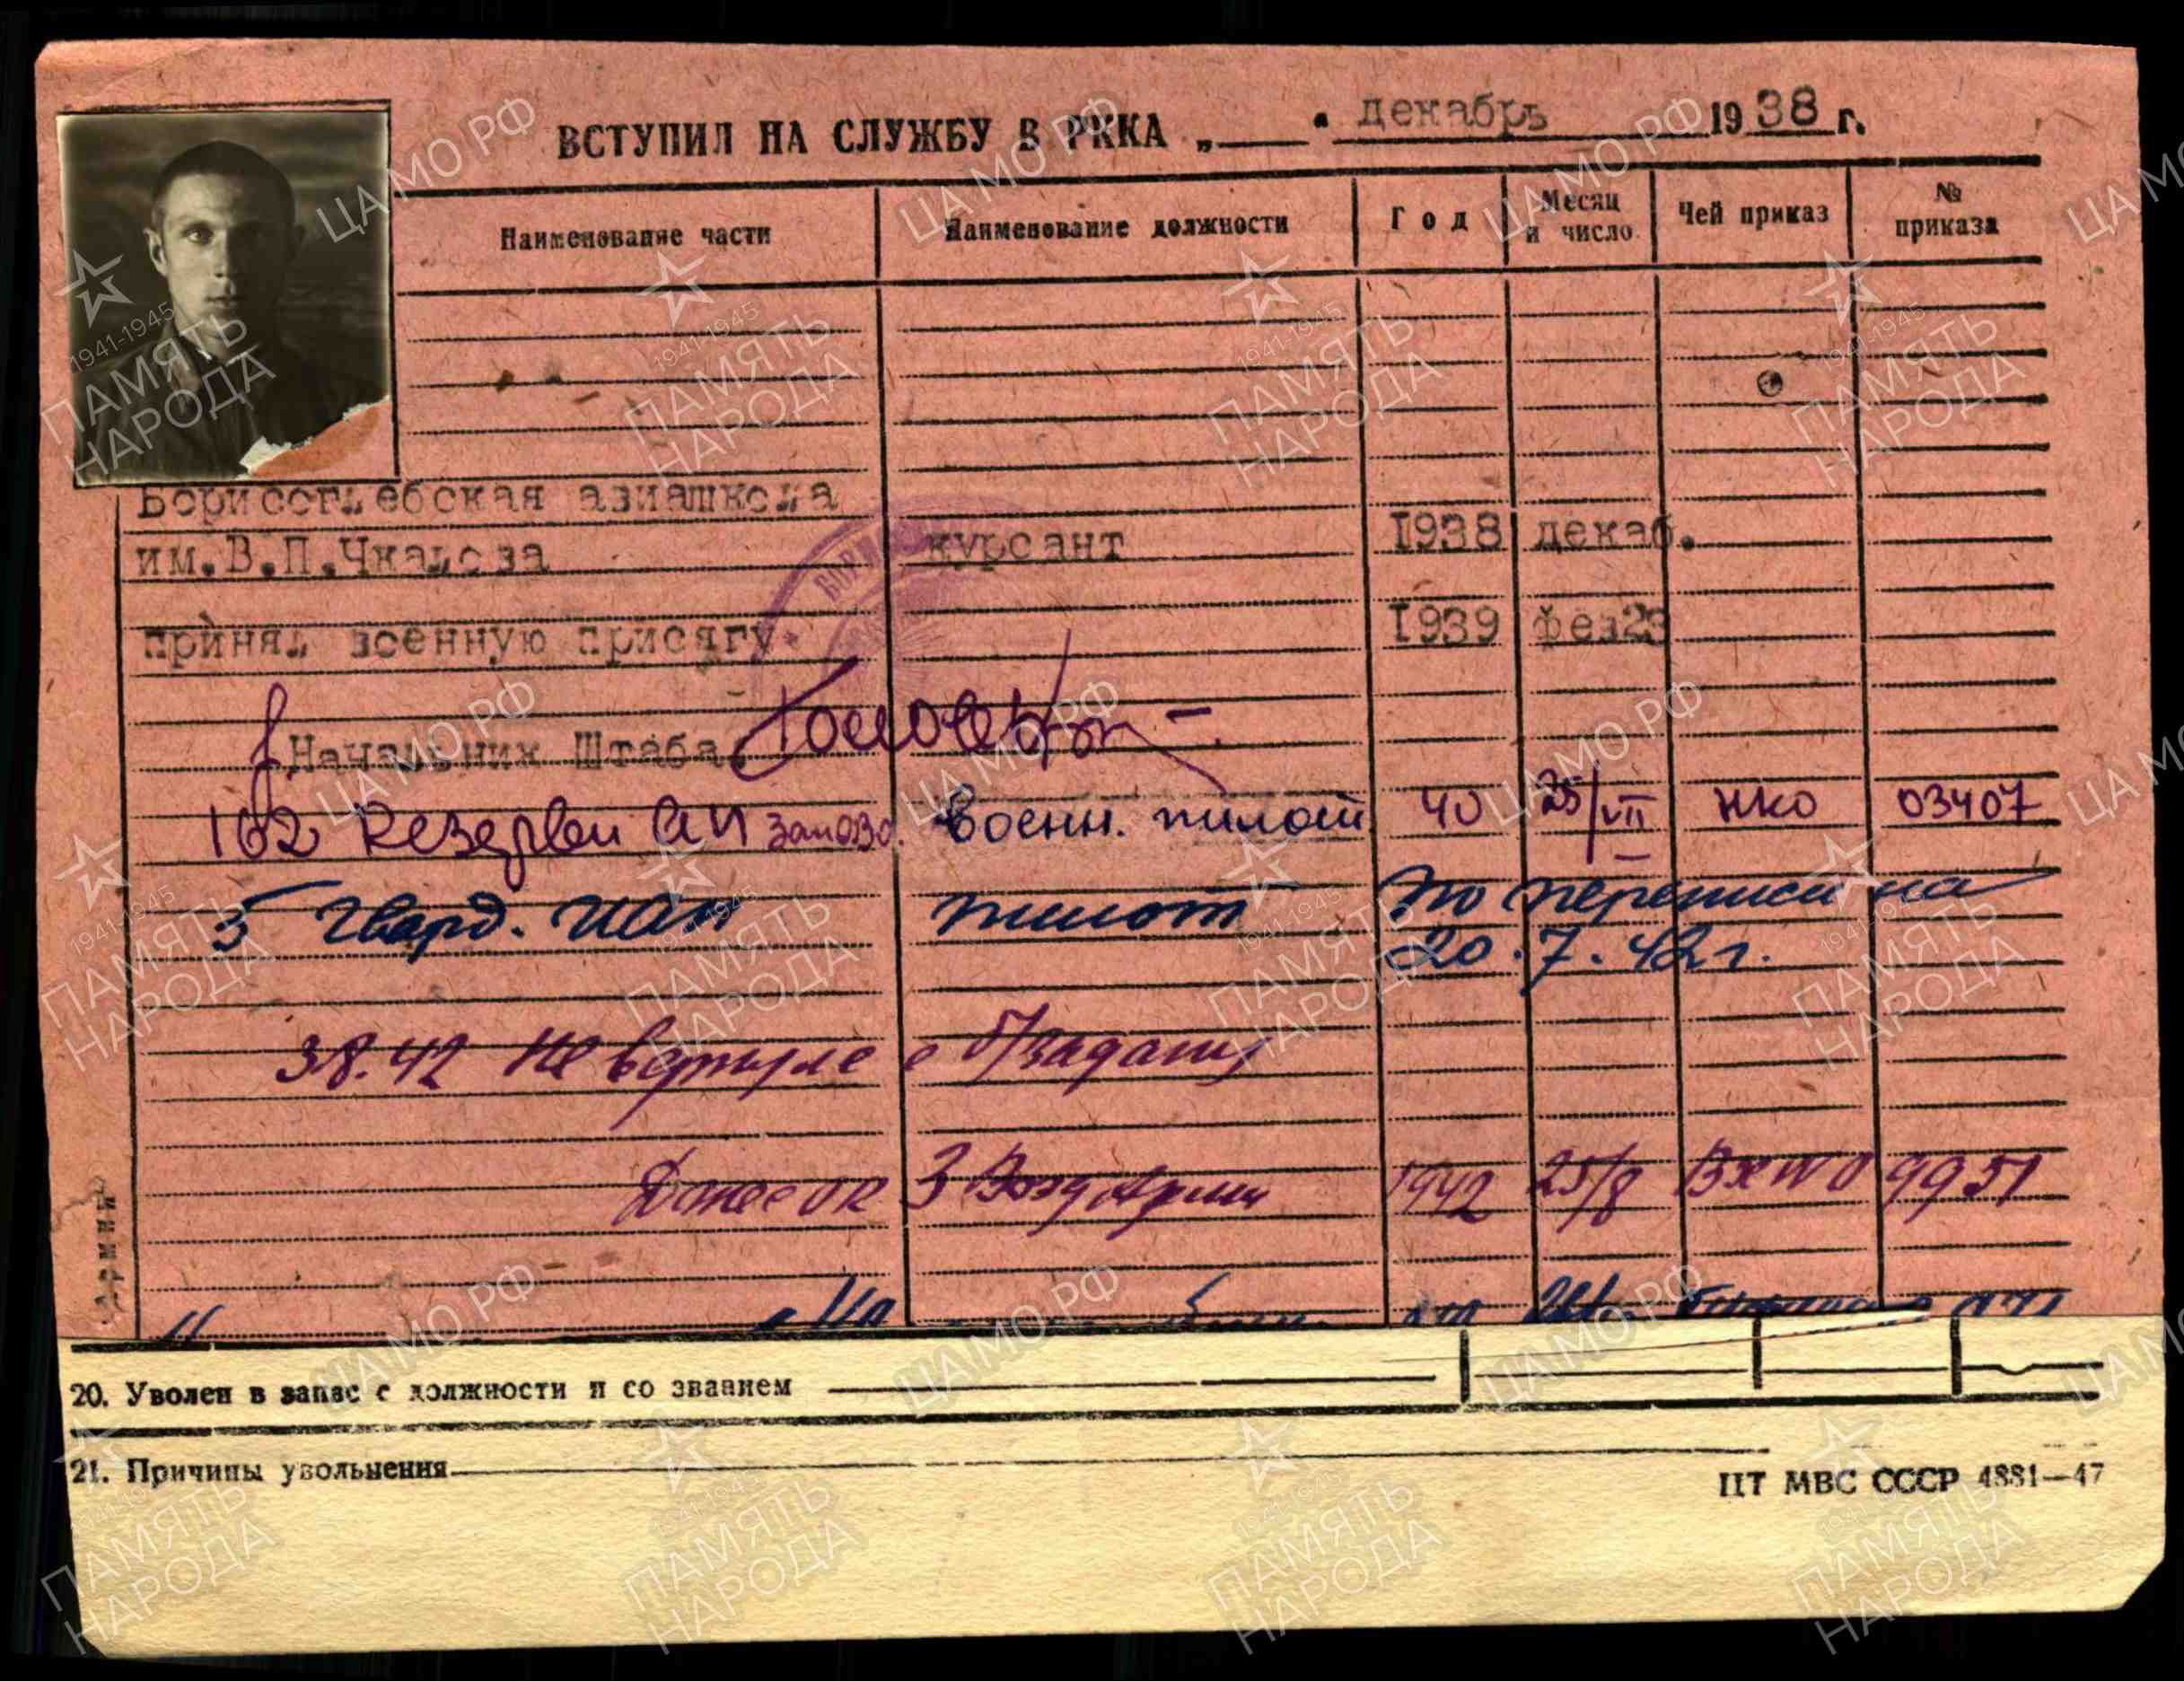 ВСТУПИЛ НА СЛУЖБУ В РККА „ “ декабрь 1938 г.
Наименование части Наименование должности Год Месяц и число Чей приказ № приказа
Борисоглебская авиашкола
им.В.П.Чкалова курсант 1938 декаб.
принял военную присягу. 1939 фев23
Начальник Штаба
162 Резервн АП ЗапОВО. Военн. пилот 40 25/VII НКО 03407
5 Гвард. ИАП пилот По переписи на
20.7.42г.
3.8.42 Не вернулс с б/задания
Донес ОК 3 Возд Армии 1942 25/8 Вх № 9951
Армии
20. Уволен в запас с должности и со званием
21. Причины увольнения
ЦТ МВС СССР 4881—47
ЦА МО РФ
1941-1945
ПАМЯТЬ
НАРОДА